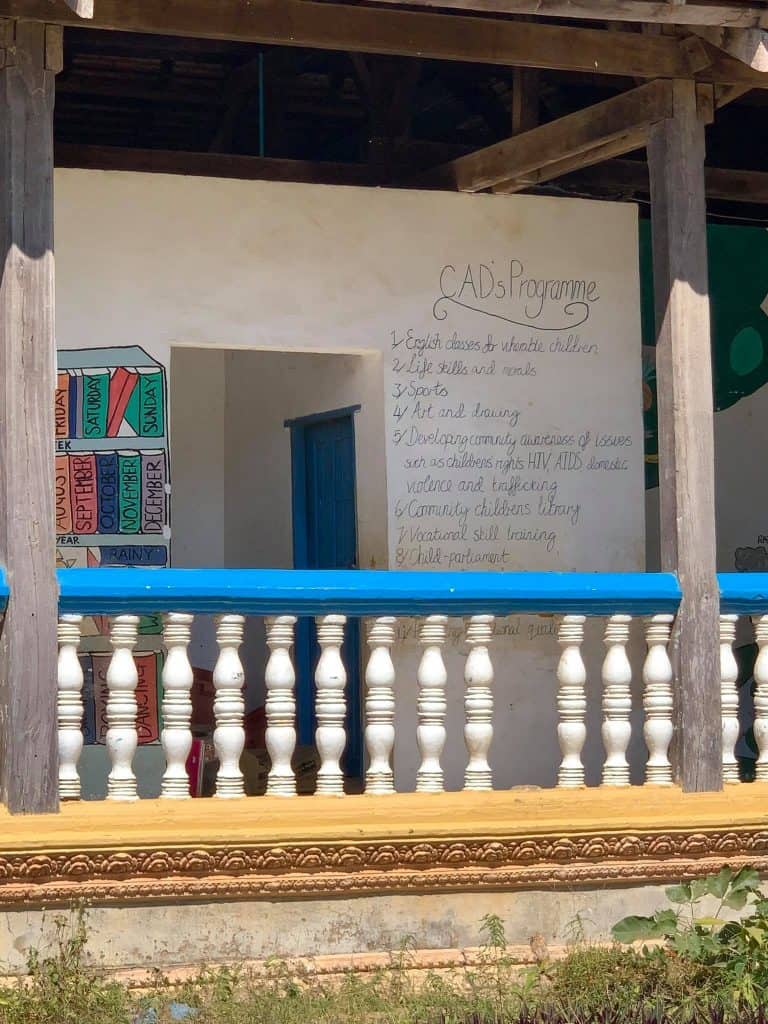 CAD's Programme
1/ English classes for vulnerable children
2/ Life skills and morals
3/ Sports
4/ Art and drawing
5/ Developing community awareness of issues
such as childrens rights HIV, AIDS domestic
violence and trafficking
6/ Community childrens library
7/ Vocational skill training
8/ Child-parliament
FRIDAY
SATURDAY
SUNDAY
AUGUST
SEPTEMBER
OCTOBER
NOVEMBER
DECEMBER
YEAR
RAINY
BOXING
DANCING